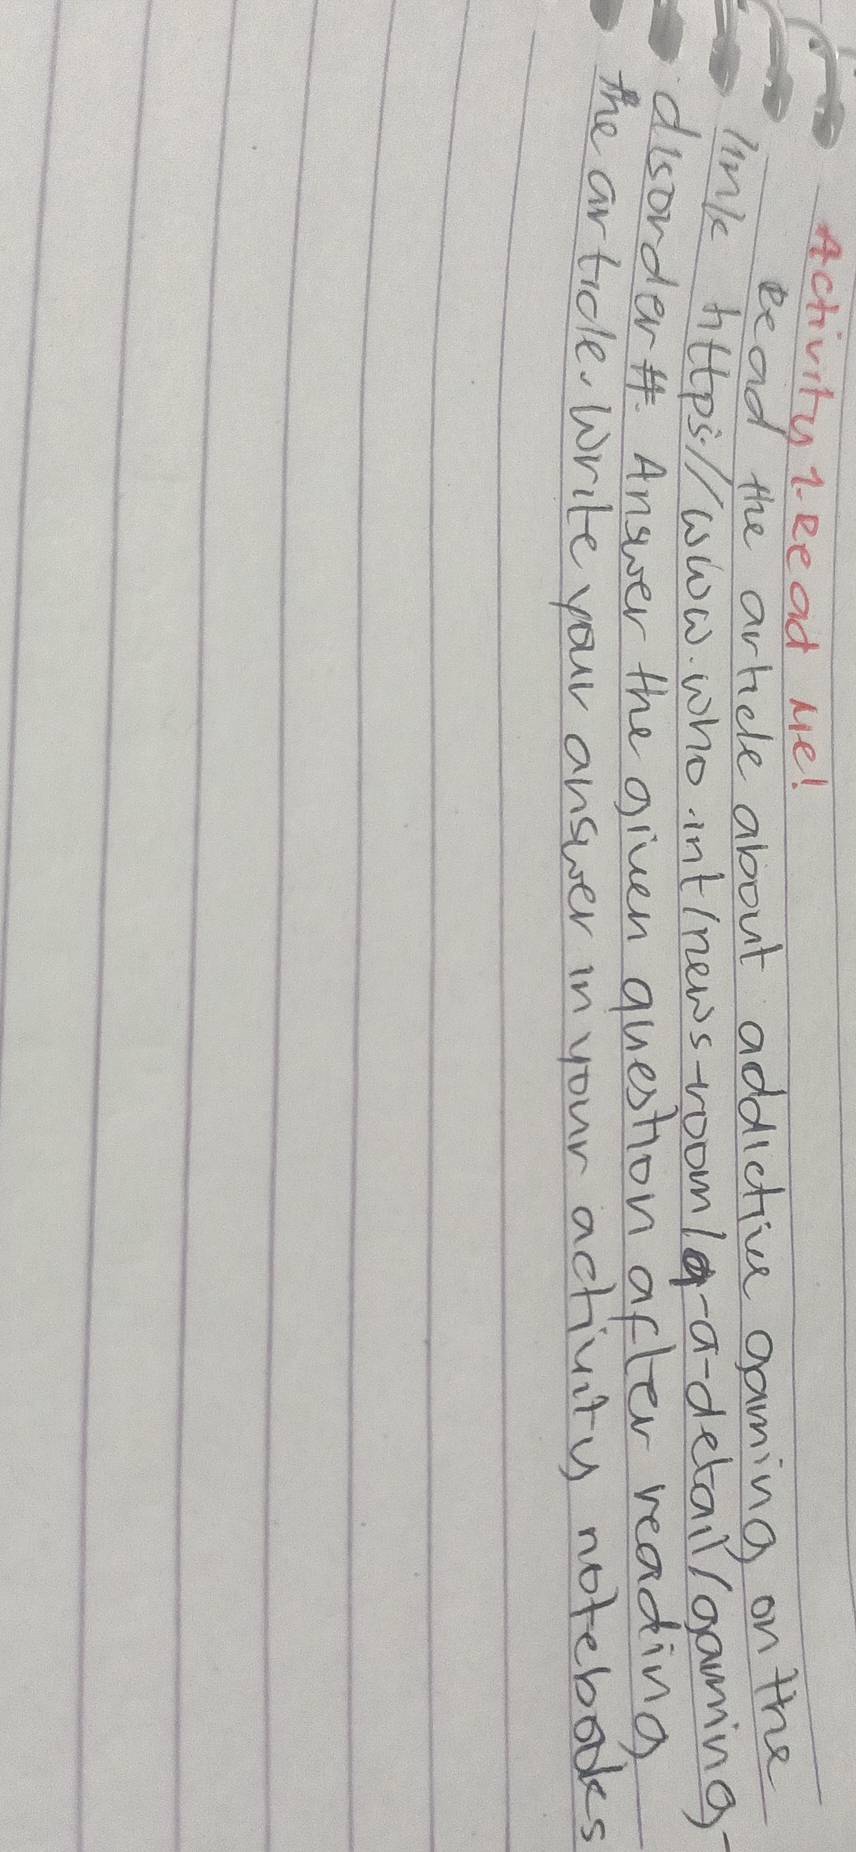 Activity 1-Read Me!
Read the article about addictive gaming on the
link https://www.who.int/news-room/q-a-detail/gaming-
disorder#. Answer the given question after reading
the article. Write your answer in your activity notebooks